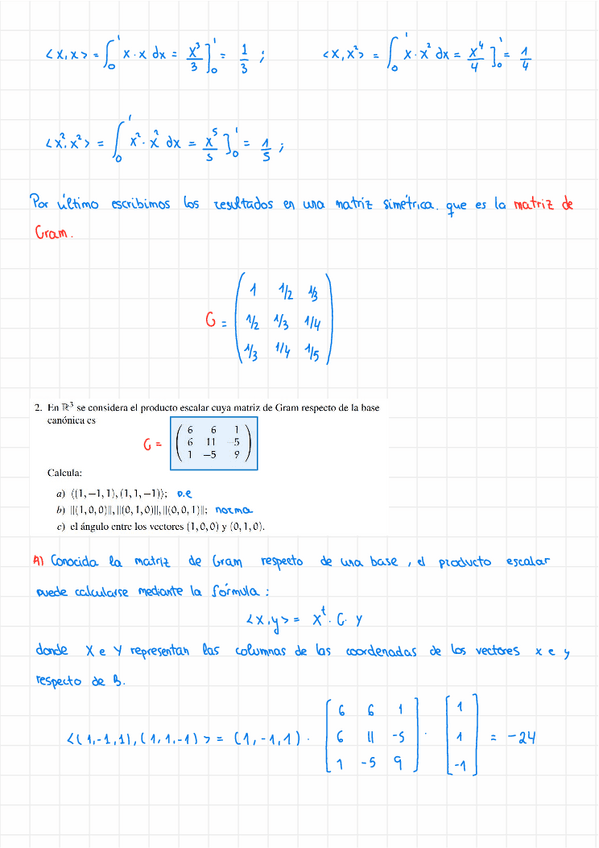 <x,x> = ∫₀¹ x·x dx = x³/3 ]₀¹ = 1/3 ; <x,x²> = ∫₀¹ x·x² dx = x⁴/4 ]₀¹ = 1/4
<x²,x²> = ∫₀¹ x²·x² dx = x⁵/5 ]₀¹ = 1/5 ;
Por último escribimos los resultados en una matriz simétrica, que es la matriz de
Gram.
1 1/2 1/3
G = 1/2 1/3 1/4
1/3 1/4 1/5
2. En ℝ³ se considera el producto escalar cuya matriz de Gram respecto de la base
canónica es
6 6 1
G = 6 11 -5
1 -5 9
Calcula:
a) ⟨(1,−1,1),(1,1,−1)⟩; p.e
b) ||(1,0,0)||, ||(0,1,0)||, ||(0,0,1)||; norma
c) el ángulo entre los vectores (1,0,0) y (0,1,0).
A) Conocida la matriz de Gram respecto de una base, el producto escalar
puede calcularse mediante la fórmula:
<x,y> = Xᵗ · G · Y
donde X e Y representan las columnas de las coordenadas de los vectores x e y
respecto de B.
6 6 1 1
<(1,-1,1),(1,1,-1)> = (1,-1,1) · 6 11 -5 · 1 = -24
1 -5 9 -1